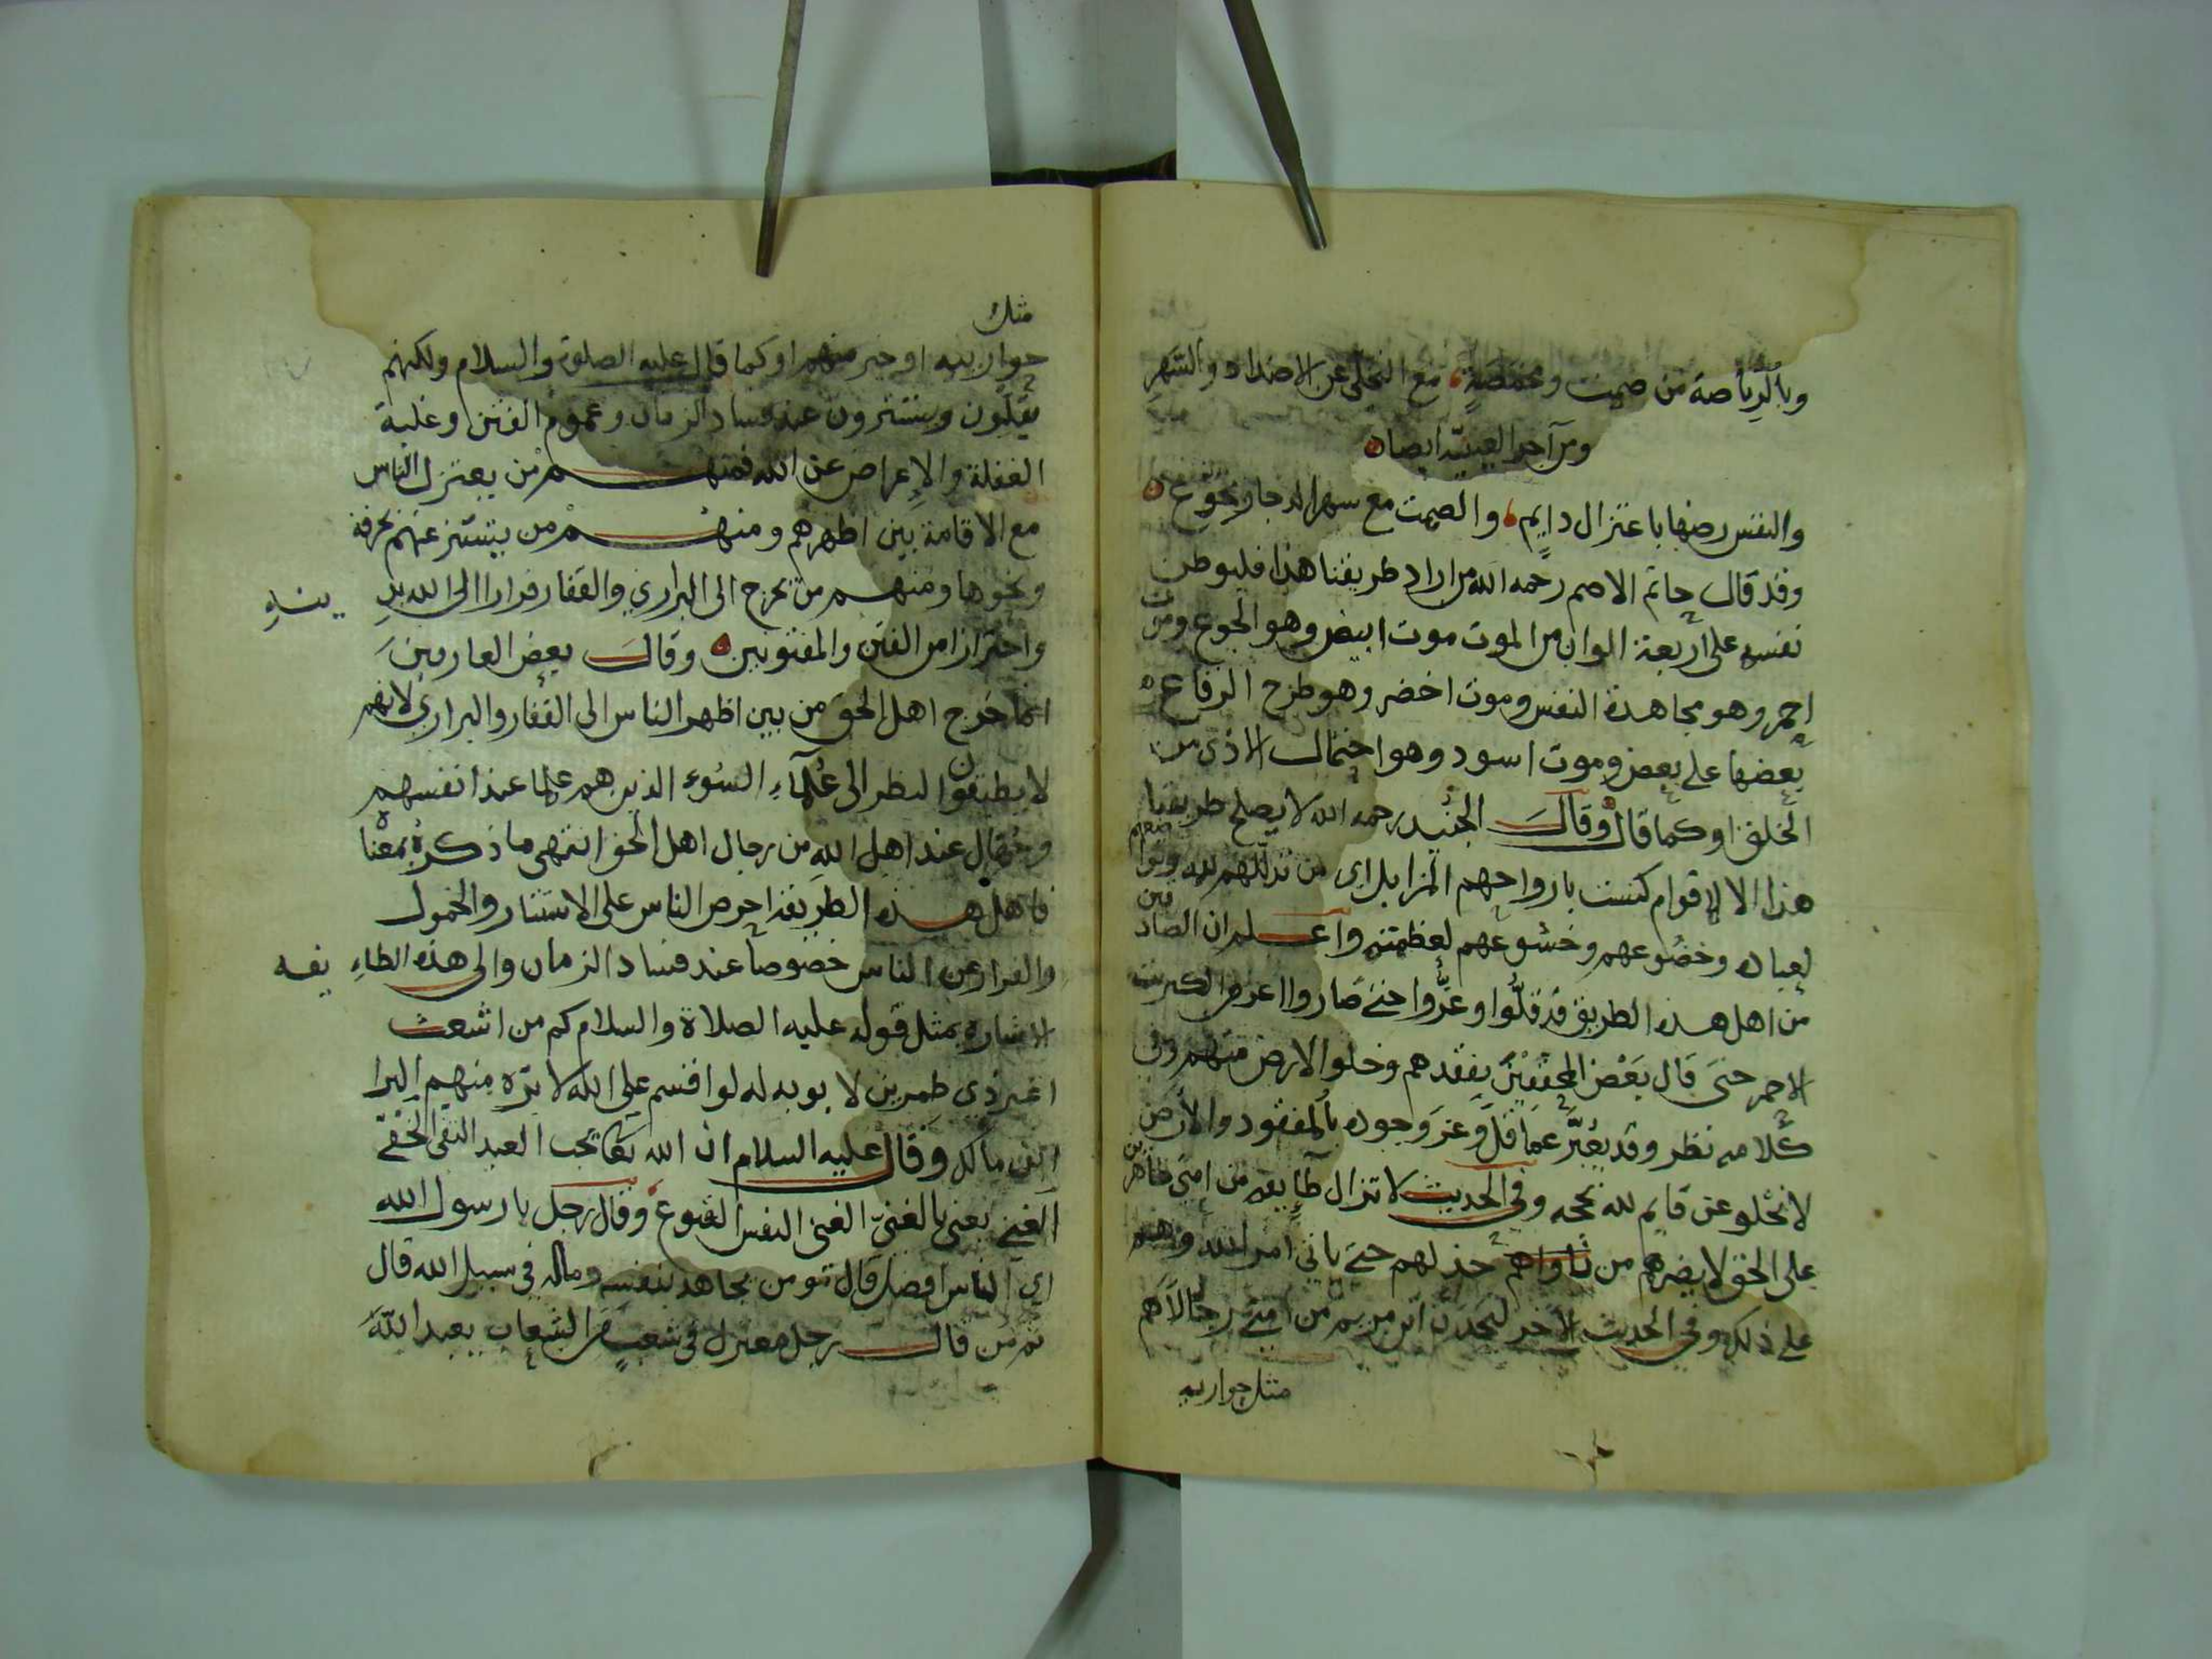 وبالرياضة من صمت ومخمصة مع التخلي عن الاضداد والشهر
ومن آخر العينية ايضا
والنفس رضها باعتزال دايم والصمت مع سهر الدجا وتجوع
وقد قال حاتم الاصم رحمه الله من اراد طريقنا هذا فليوطن
نفسه على اربعة الوان من الموت موت ابيض وهو الجوع وموت
احمر وهو مجاهدة النفس وموت اخضر وهو طرح الرقاع
بعضها على بعض وموت اسود وهو احتمال الاذى من
الخلق او كما قال وقال الجنيد رحمه الله لا يصلح طريقنا
هذا الا لاقوام كنست بارواحهم المزابل اي من تذللهم لله وتواضعهم
لعباده وخضوعهم وخشوعهم لعظمته واعلم ان الصادقين
من اهل هذه الطريق قد قلّوا وعزّوا حتى صاروا اعز من الكبريت
الاحمر حتى قال بعض المحققين بفقدهم وخلو الارض منهم وفي
كلامه نظر وقد يعبّر عما قل وعز وجوده بالمفقود والارض
لا تخلو عن قايم لله بحجه وفي الحديث لا تزال طايفه من امتي ظاهرين
على الحق لا يضرهم من ناواهم خذلهم حتى ياتي امر الله وهم
على ذلك وفي الحديث الآخر ليجدن ابن مريم من امتي رجالا هم
مثل حواريه
مثل
حواربيه او خير منهم او كما قال عليه الصلوة والسلام ولكنهم
يقلون ويستترون عند فساد الزمان وعموم الفتن وغلبة
الغفلة والاعراض عن الله فمنهم من يعتزل الناس
مع الاقامة بين اظهرهم ومنهم من يتستر عنهم بحرفة
ونحوها ومنهم من يخرج الى البراري والقفار فرارا الى الله بدينه
واحترازا من الفتن والمفتونين وقال بعض العارفين
انما خرج اهل الحق من بين اظهر الناس الى القفار والبراري لانهم
لا يطيقون النظر الى علمآء السوء الذين هم علما عند انفسهم
وجهال عند اهل الله من رجال اهل الحق انتهى ما ذكره بمعناه
فاهل هذه الطريقة احرص الناس على الاستتار والخمول
والفرار عن الناس خصوصا عند فساد الزمان والى هذه الطايفه
الاشارة بمثل قوله عليه الصلاة والسلام كم من اشعث
اغبر ذي طمرين لا يوبه له لو اقسم على الله لابرّه منهم البرا
ابن مالك وقال عليه السلام ان الله تعا يحب العبد التقي الخفي
الغني يعني بالغني الغني النفس القنوع وقال رجل يا رسول الله
اي الناس افضل قال مومن يجاهد بنفسه وماله في سبيل الله قال
ثم من قال رجل معتزل في شعب من الشعاب يعبد الله